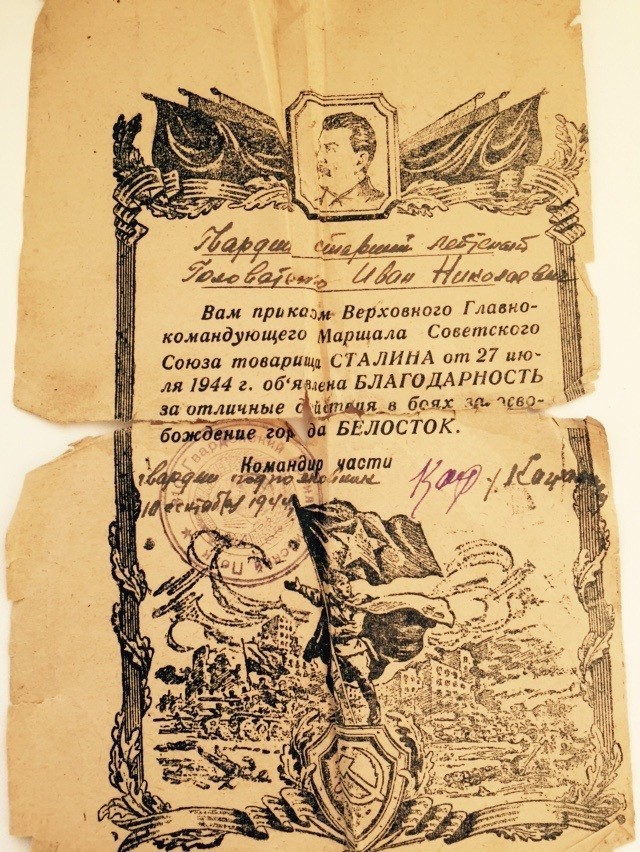 Гвардии старший лейтенант
Иван Николаевич
Вам приказом Верховного Главно-
командующего Маршала Советского
Союза товарища СТАЛИНА от 27 ию-
ля 1944 г. об'явлена БЛАГОДАРНОСТЬ
за отличные действия в боях за осво-
бождение города БЕЛОСТОК.
Командир части
гвардии подполковник
10 сентября 1944